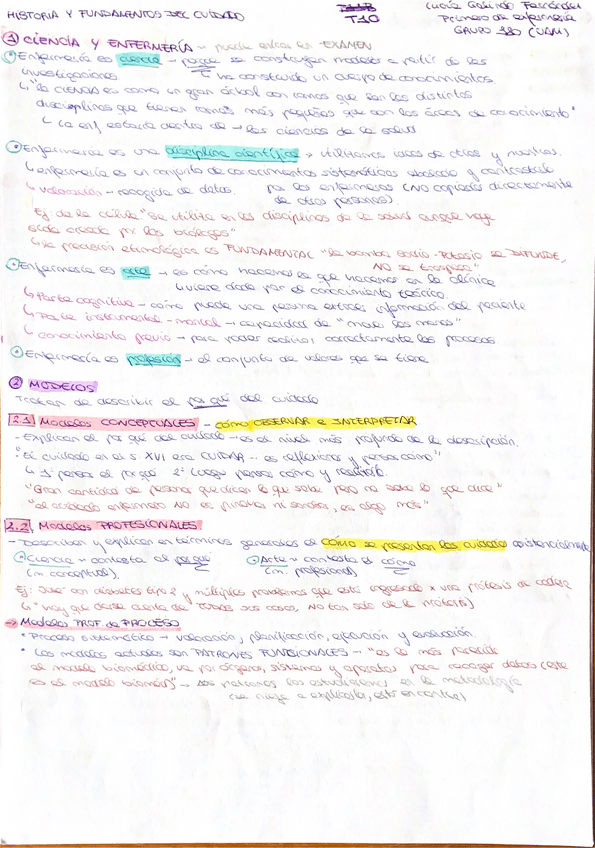 HISTORIA Y FUNDAMENTOS DEL CUIDADO
T10
Lucía Galindo Fernández
Primero de enfermería
GRUPO 180 (UAM)
① CIENCIA Y ENFERMERÍA - puede entrar en EXAMEN
Enfermería es ciencia - porque se construyen modelos a partir de las
investigaciones. ha construido un cuerpo de conocimientos.
"la CIENCIA es como un gran árbol con ramas que son las distintas
disciplinas que tienen ramas más pequeñas que son las áreas de conocimiento"
la enf. estaría dentro de → las ciencias de la salud
Enfermería es una disciplina científica → utilizamos ideas de otros y nuestras.
enfermería es un conjunto de conocimientos sistemáticos elaborado y contrastado
por los enfermeros (NO copiados directamente
de otras personas).
valoración - recogida de datos.
Ej: de la célula "se utiliza en las disciplinas de la salud aunque haya
sido creada por los biólogos"
la precisión etimológica es FUNDAMENTAL "la bomba sodio-Potasio se DIFUNDE,
NO se traspasa"
Enfermería es arte → es cómo hacemos lo que hacemos en la clínica
viene dado por el conocimiento teórico.
Parte cognitiva - cómo puede una persona extraer información del paciente
Parte instrumental - manual - capacidad de "mover las manos"
conocimiento previo - para poder realizar correctamente los procesos
Enfermería es profesión - el conjunto de valores que se tiene
② MODELOS
Tratan de describir el por qué del cuidado
2.1 Modelos CONCEPTUALES - cómo OBSERVAR e INTERPRETAR
- Explican el por qué del cuidado - es el nivel más profundo de la descripción.
"El cuidado en el s XVI era CUIDAR - es reflexionar y pensar cómo"
1º pensar el por qué 2º luego pensar cómo y realizarlo.
"Gran cantidad de personas que dicen lo que sabe pero no sabe lo que dice"
"el cuidado enfermero NO es pinchar ni sondar, es algo más"
2.2 Modelos PROFESIONALES
- Describen y explican en términos generales el cómo se presentan los cuidados asistencialmente
Ciencia - contesta al por qué
(m. conceptual),
Arte - contesta al cómo
(m. profesional)
Ej: Juan con diabetes tipo 2 y múltiples problemas que está ingresado x una prótesis de cadera
"hay que darse cuenta de TODAS sus cosas, NO tan solo de la prótesis)
→ Modelos PROF. de PROCESO
* Proceso sistemático → valoración, planificación, ejecución y evaluación.
* Los modelos actuales son PATRONES FUNCIONALES - "es lo más parecido
al modelo biomédico, va por órganos, sistemas y aparatos para recoger datos (este
es el modelo biomédico)" - los patrones los estudiaremos en la metodología
(se niega a explicarla, está en contra)